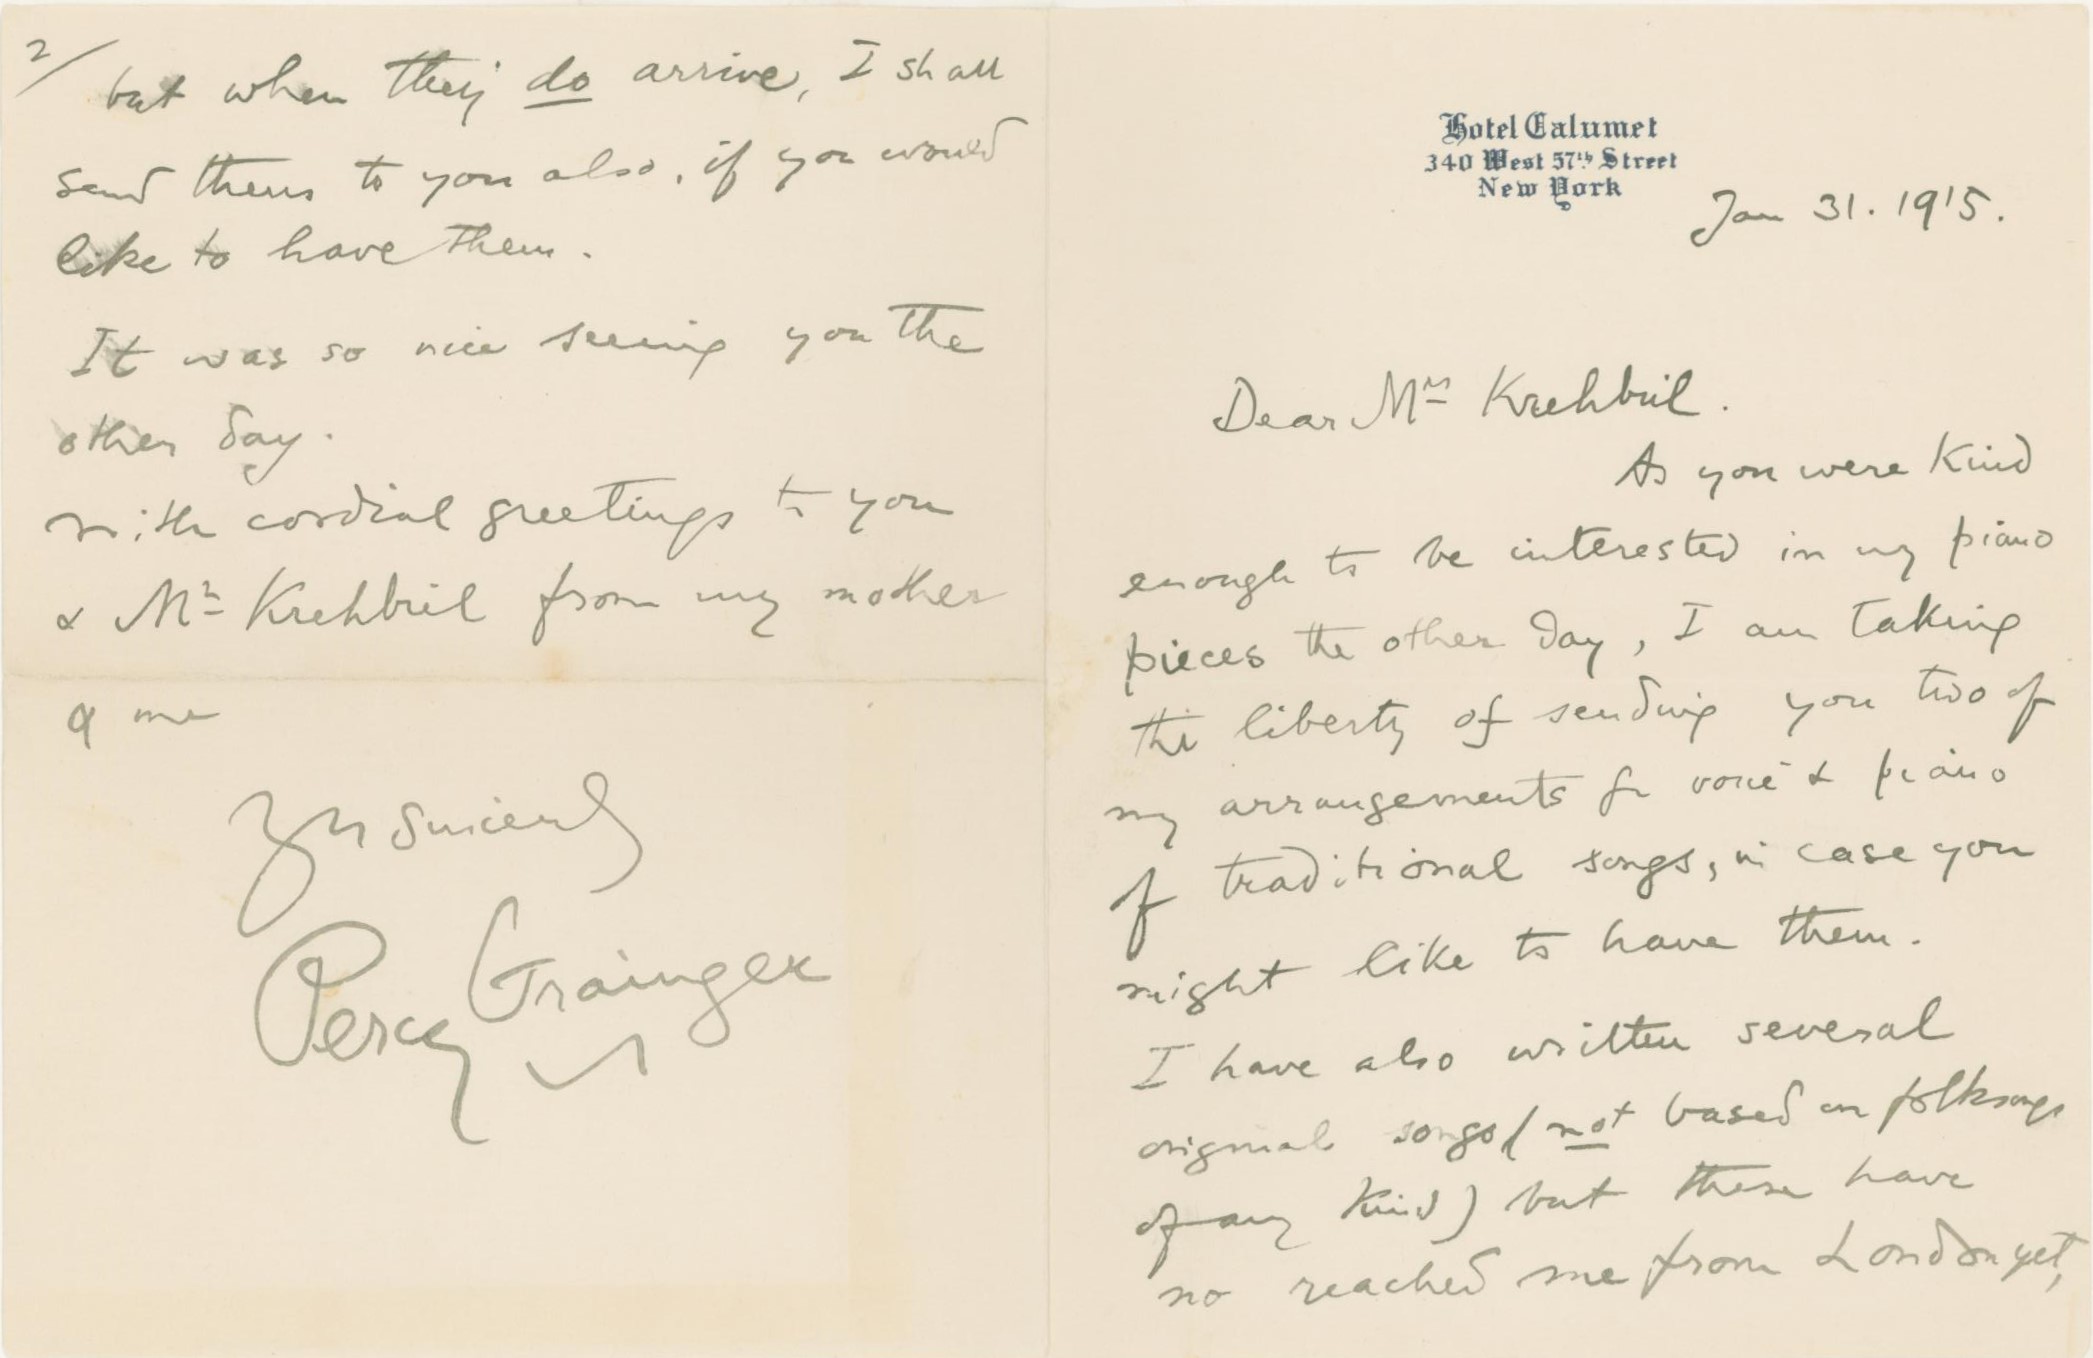 Hotel Calumet
340 West 57th Street
New York
Jan 31. 1915.
Dear Mrs Krehbiel.
As you were kind
enough to be interested in my piano
pieces the other day, I am taking
the liberty of sending you two of
my arrangements for voice & piano
of traditional songs, in case you
might like to have them.
I have also written several
original songs (not based on folksongs
of any kind) but these have
no reached me from London yet,
2/
but when they do arrive, I shall
send them to you also, if you would
like to have them.
It was so nice seeing you the
other day.
with cordial greetings to you
& Mr Krehbiel from my mother
& me
Yrs sincerely
Percy Grainger